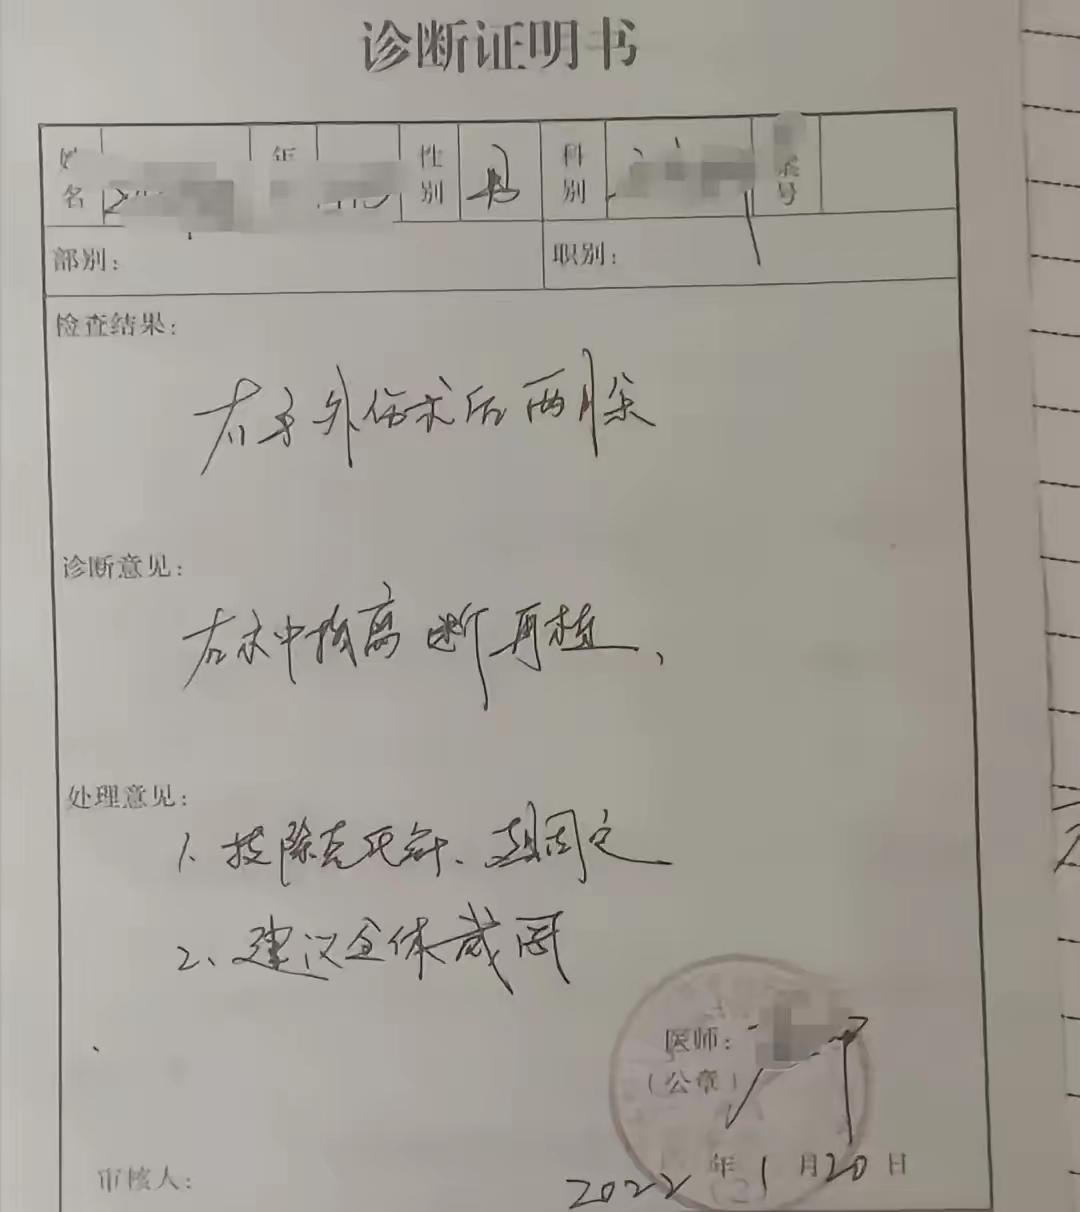 诊断证明书
姓名 年 性别 男 科别 号
部别： 职别：
检查结果：
右手外伤术后两月余
诊断意见：
右 中指离断再植、
处理意见：
1、拔除克氏针、 固定
2、建议全休 周
医师：
（公章）
审核人： 2022年1月20日